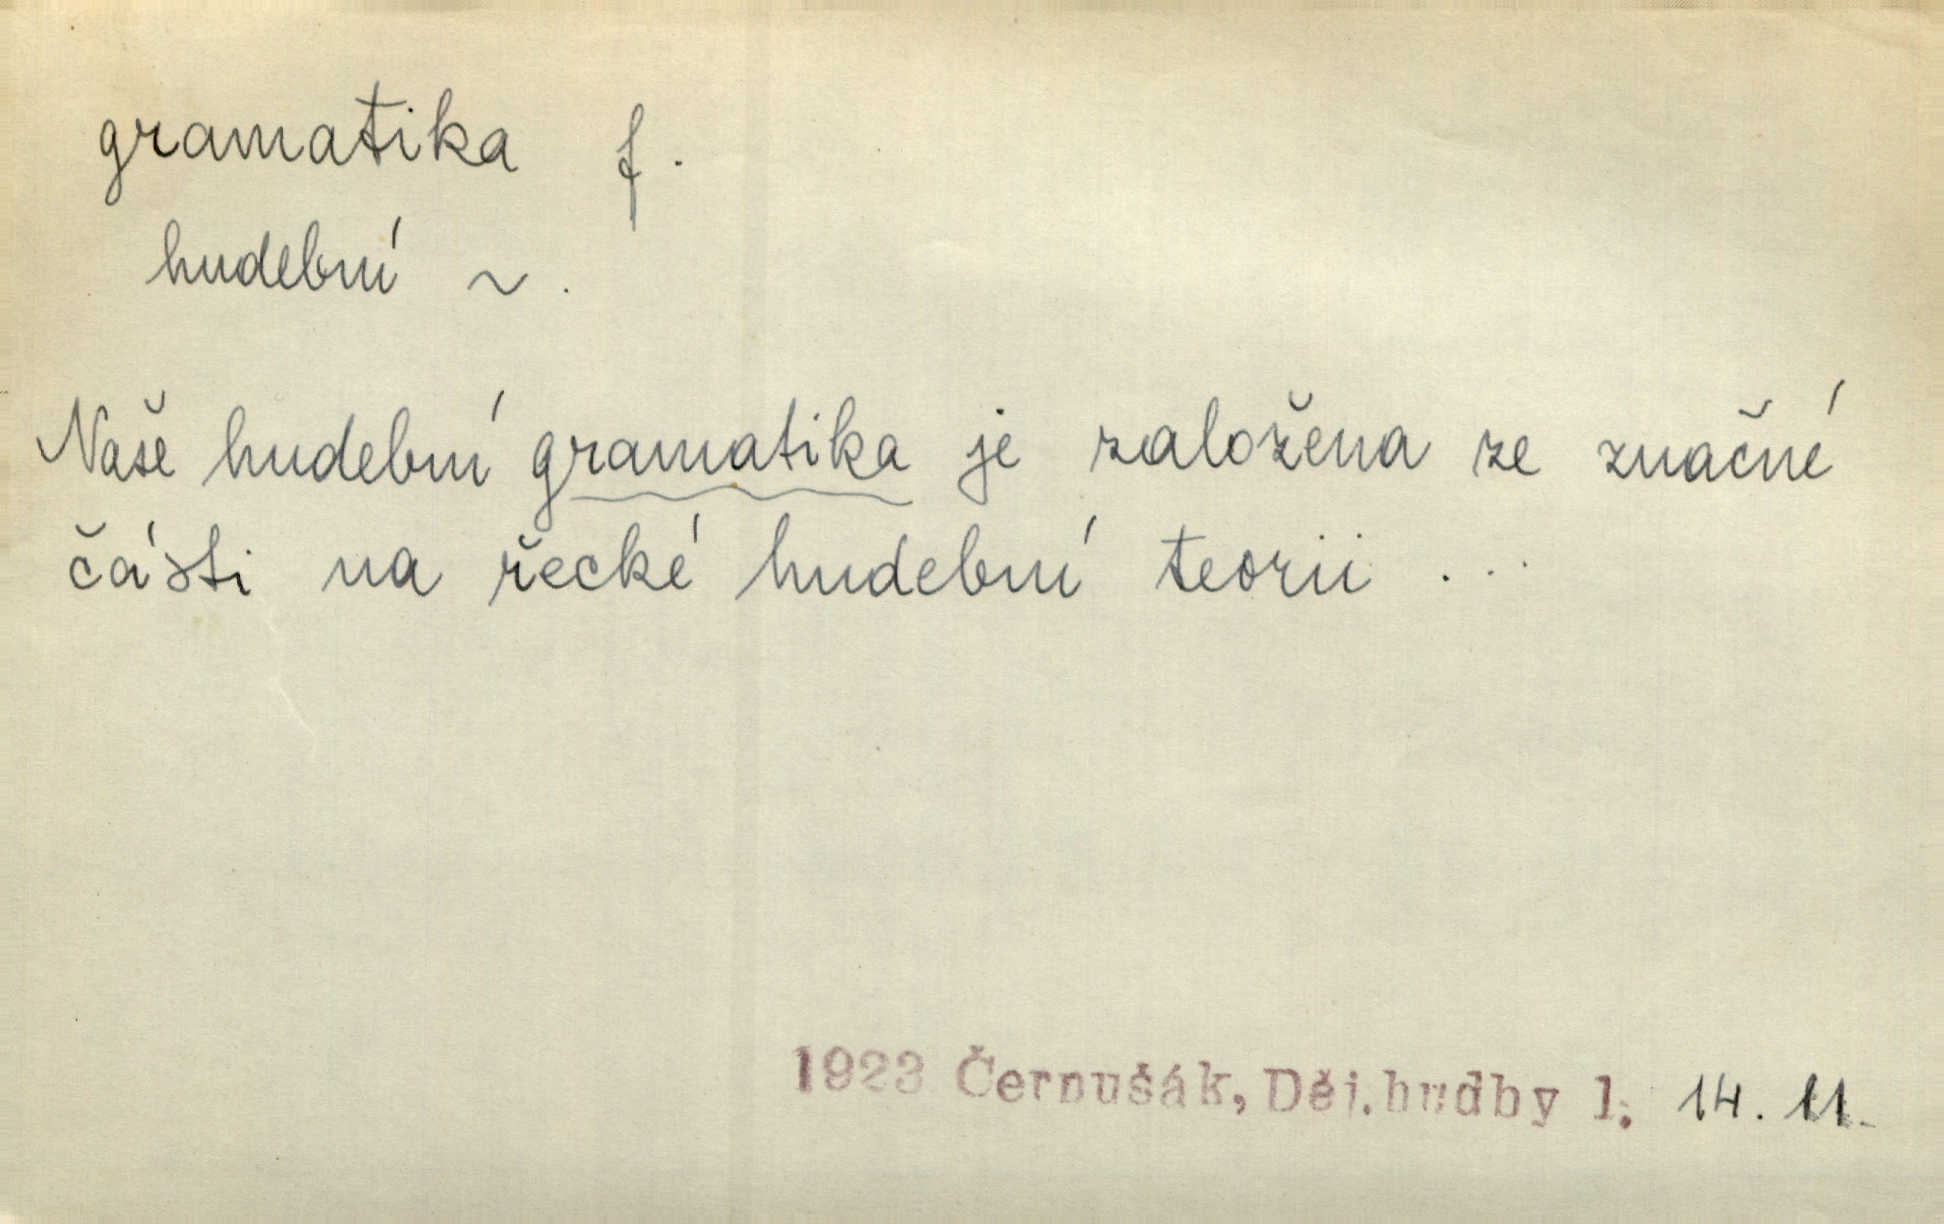 gramatika f.
hudební ~.
Naše hudební gramatika je založena ze značné
části na řecké hudební teorii ...
1923 Černušák, Děj. hudby 1. 14. 11.